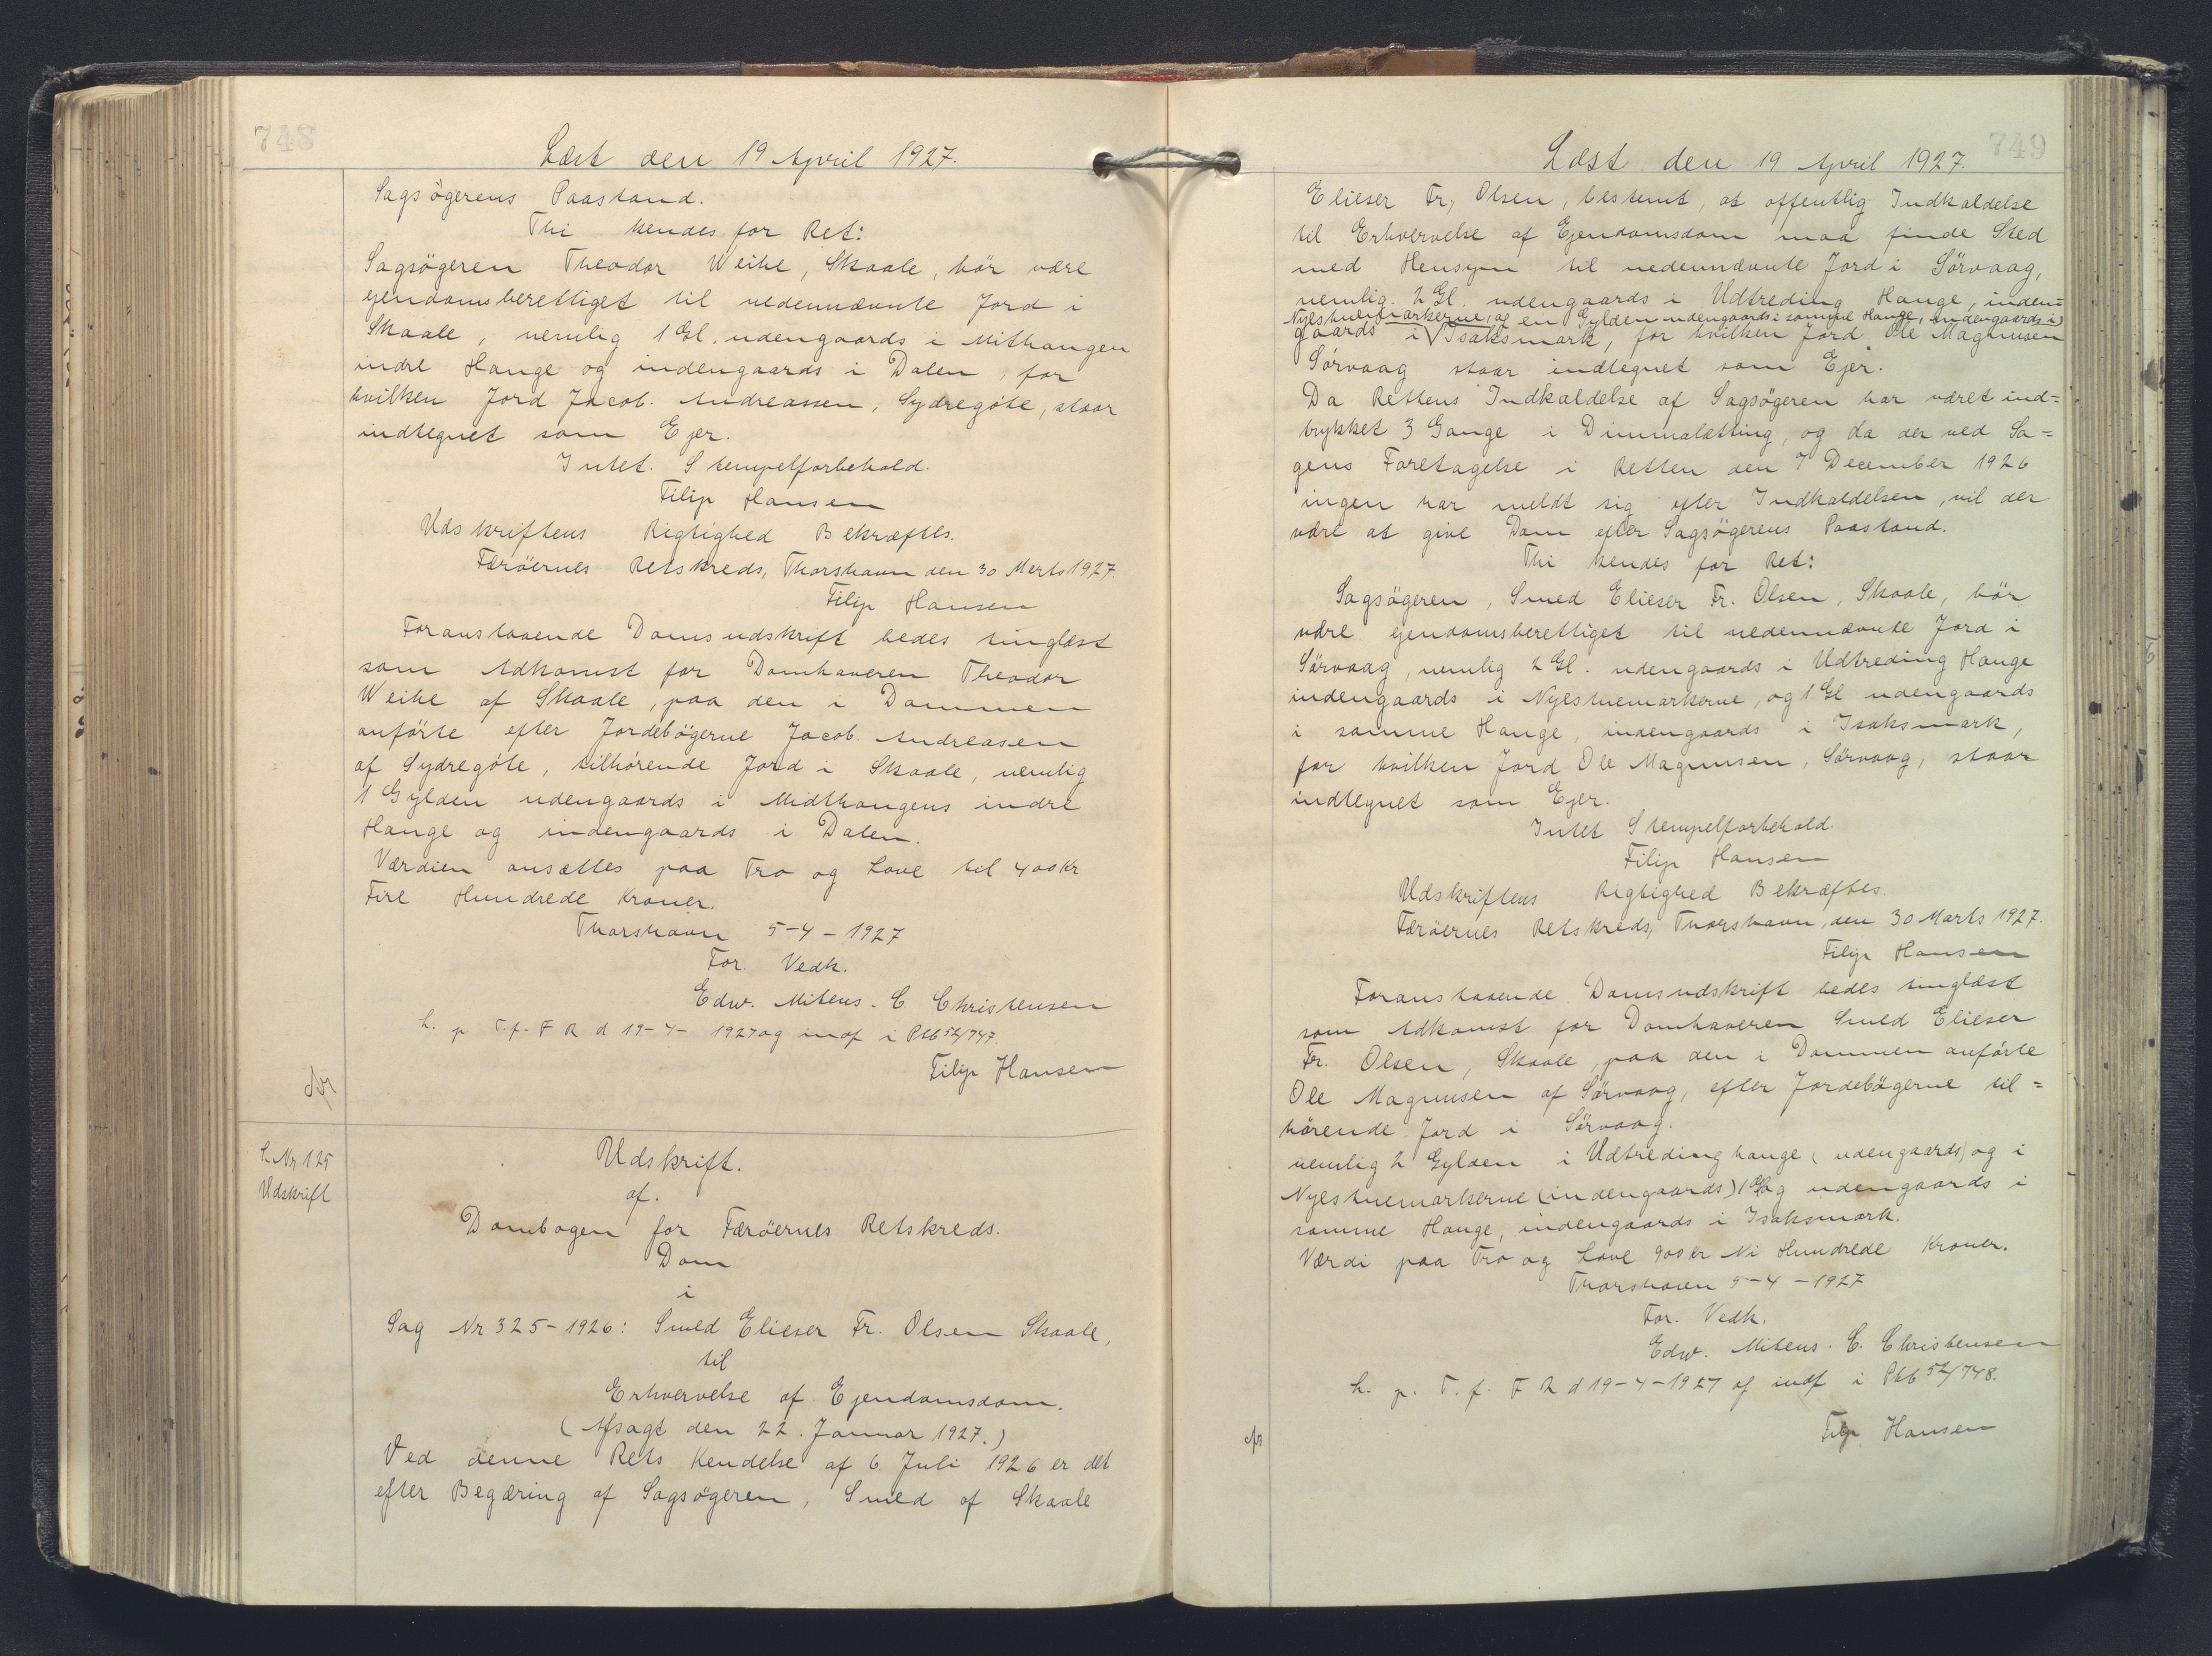 748
Læst den 19 April 1927.
Sagsögerens Paastand.
Thi kendes for Ret:
Sagsögeren Theodor Weihe, Skaale, bör være
ejendomsberettiget til nedennævnte Jord i
Skaale, nemlig 1 Gl. udengaards i Mithaugen
indre Hauge og indengaards i Dalen, for
hvilken Jord Jacob Andreassen, Sydregöte, staar
indtegnet som Ejer.
Intet Stempelforbehold.
Filip Hansen
Udskriftens Rigtighed Bekræftes.
Færöernes Retskreds, Thorshavn den 30 Merts 1927.
Filip Hansen
Foranstaaende Domsudskrift bedes tinglæst
som Adkomst for Domhaveren Theodor
Weihe af Skaale, paa den i Dommen
anförte efter Jordebögerne Jacob Andreasen
af Sydregöte, tilhörende Jord i Skaale, nemlig
1 Gylden udengaards i Midthaugens indre
Hauge og indengaards i Dalen.
Værdien ansættes paa Tro og Love til 400 Kr
Fire Hundrede Kroner.
Thorshavn 5-4-1927
For. Vedk.
Edw. Mitens. C. Christensen
L. p. T. f. F R d 19-4-1927 og indf i Pkb 52/747.
Filip Hansen
L. Nr 125
Udskrift
Udskrift.
af.
Dombogen for Færöernes Retskreds.
Dom
i
Sag Nr 325-1926: Smed Elieser Fr. Olsen Skaale,
til
Erhvervelse af Ejendomsdom.
(Afsagt den 22. Januar 1927.)
Ved denne Rets Kendelse af 6 Juli 1926 er det
efter Begæring af Sagsögeren, Smed af Skaale
749
Læst den 19 April 1927.
Elieser Fr, Olsen, bestemt, at offentlig Indkaldelse
til Erhvervelse af Ejendomsdom maa finde Sted
med Hensyn til nedennævnte Jord i Sörvaag,
nemlig 2 Gl. udengaards i Udtreding Hauge, inden=
Nyestuemarkerne, og en Gylden udengaards i samme Hauge, indengaards i
gaards i Isaksmark, for hvilken Jord Ole Magnusen
Sörvaag staar indtegnet som Ejer.
Da Rettens Indkaldelse af Sagsögeren har været ind=
trykket 3 Gange i Dimmalætting, og da der ved Sa=
gens Foretagelse i Retten den 7 December 1926
ingen har meldt sig efter Indkaldelsen, vil der
være at give Dom efter Sagsögerens Paastand.
Thi kendes for Ret:
Sagsögeren, Smed Elieser Fr. Olsen, Skaale, bör
være ejendomsberettiget til nedennævnte Jord i
Sörvaag, nemlig 2 Gl. udengaards i Udtreding Hauge
indengaards i Nyestuemarkerne, og 1 Gl udengaards
i samme Hauge, indengaards i Isaksmark,
for hvilken Jord Ole Magnusen, Sörvaag, staar
indtegnet som Ejer.
Intet Stempelforbehold
Filip Hansen
Udskriftens Rigtighed Bekræftes.
Færöernes Retskreds, Thorshavn, den 30 Marts 1927.
Filip Hansen
Foranstaaende Domsudskrift bedes tinglæst
som Adkomst for Domhaveren Smed Elieser
Fr. Olsen, Skaale, paa den i Dommen anförte
Ole Magnusen af Sörvaag, efter Jordebögerne til=
hörende Jord i Sörvaag.
nemlig 2 Gylden i Udtreding hauge (udengaards) og i
Nyestuemarkerne (indengaards) 1 Gl og udengaards i
samme Hauge, indengaards i Isaksmark.
Værdi paa Tro og Love 900 kr Ni Hundrede Kroner.
Thorshavn 5-4-1927
For. Vedk.
Edw. Mitens. C. Christensen
L. p. T. f. F R d 19-4-1927 og indf i Pkb 52/748.
Filip Hansen